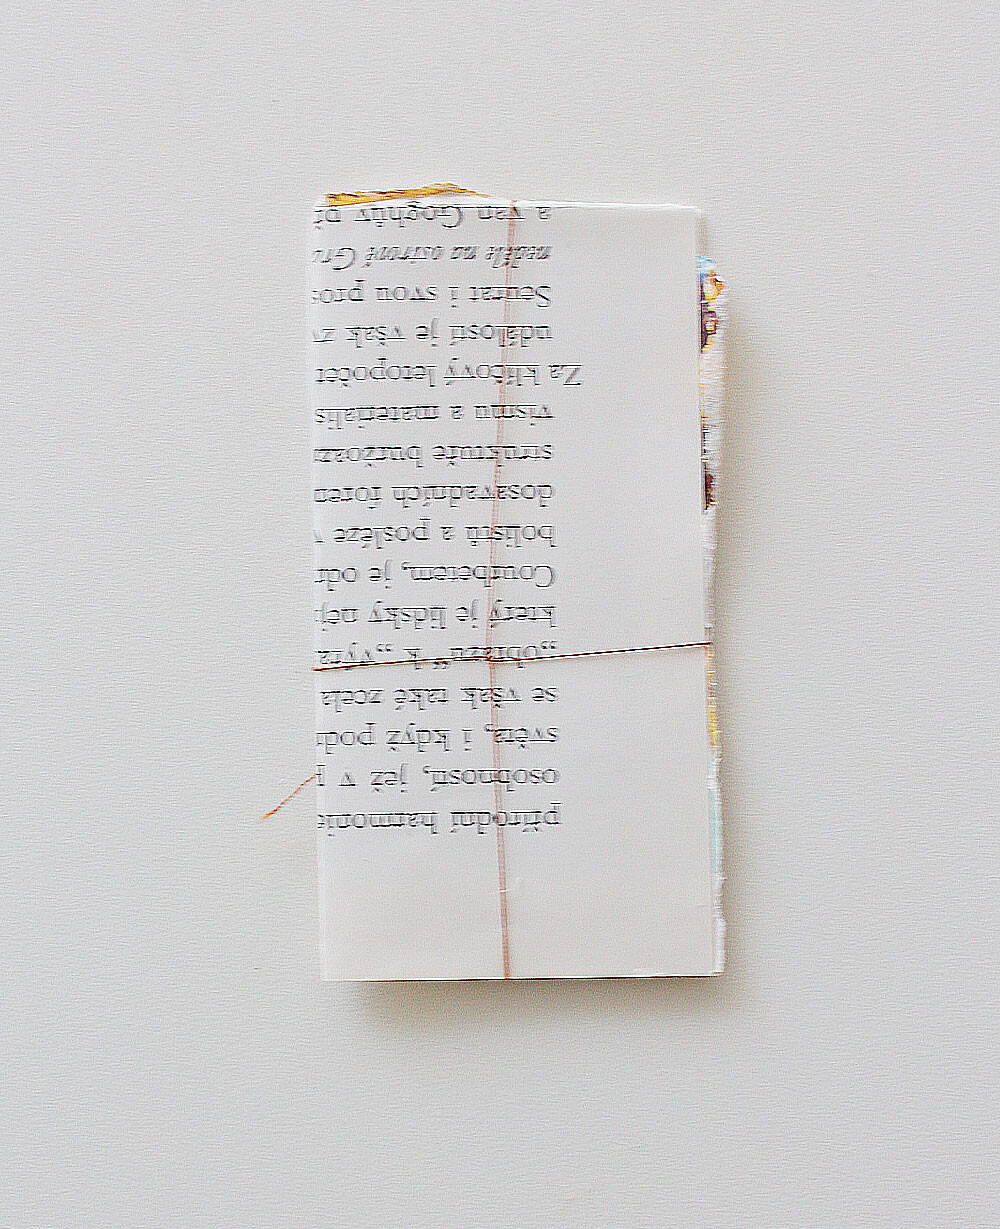 přírodní harmonie
osobností, jež v p
světa, i když podr
se však také zcela
„obrazu“ k „výra
který je lidsky nej
Courbetem, je odm
bolistů a posléze v
dosavadních forem
struktuře buržoaz
vismu a materialis
Za klíčový letopočet
událostí je však zv
Seurat i svou pros
neděle na ostrově Gra
a van Goghův př